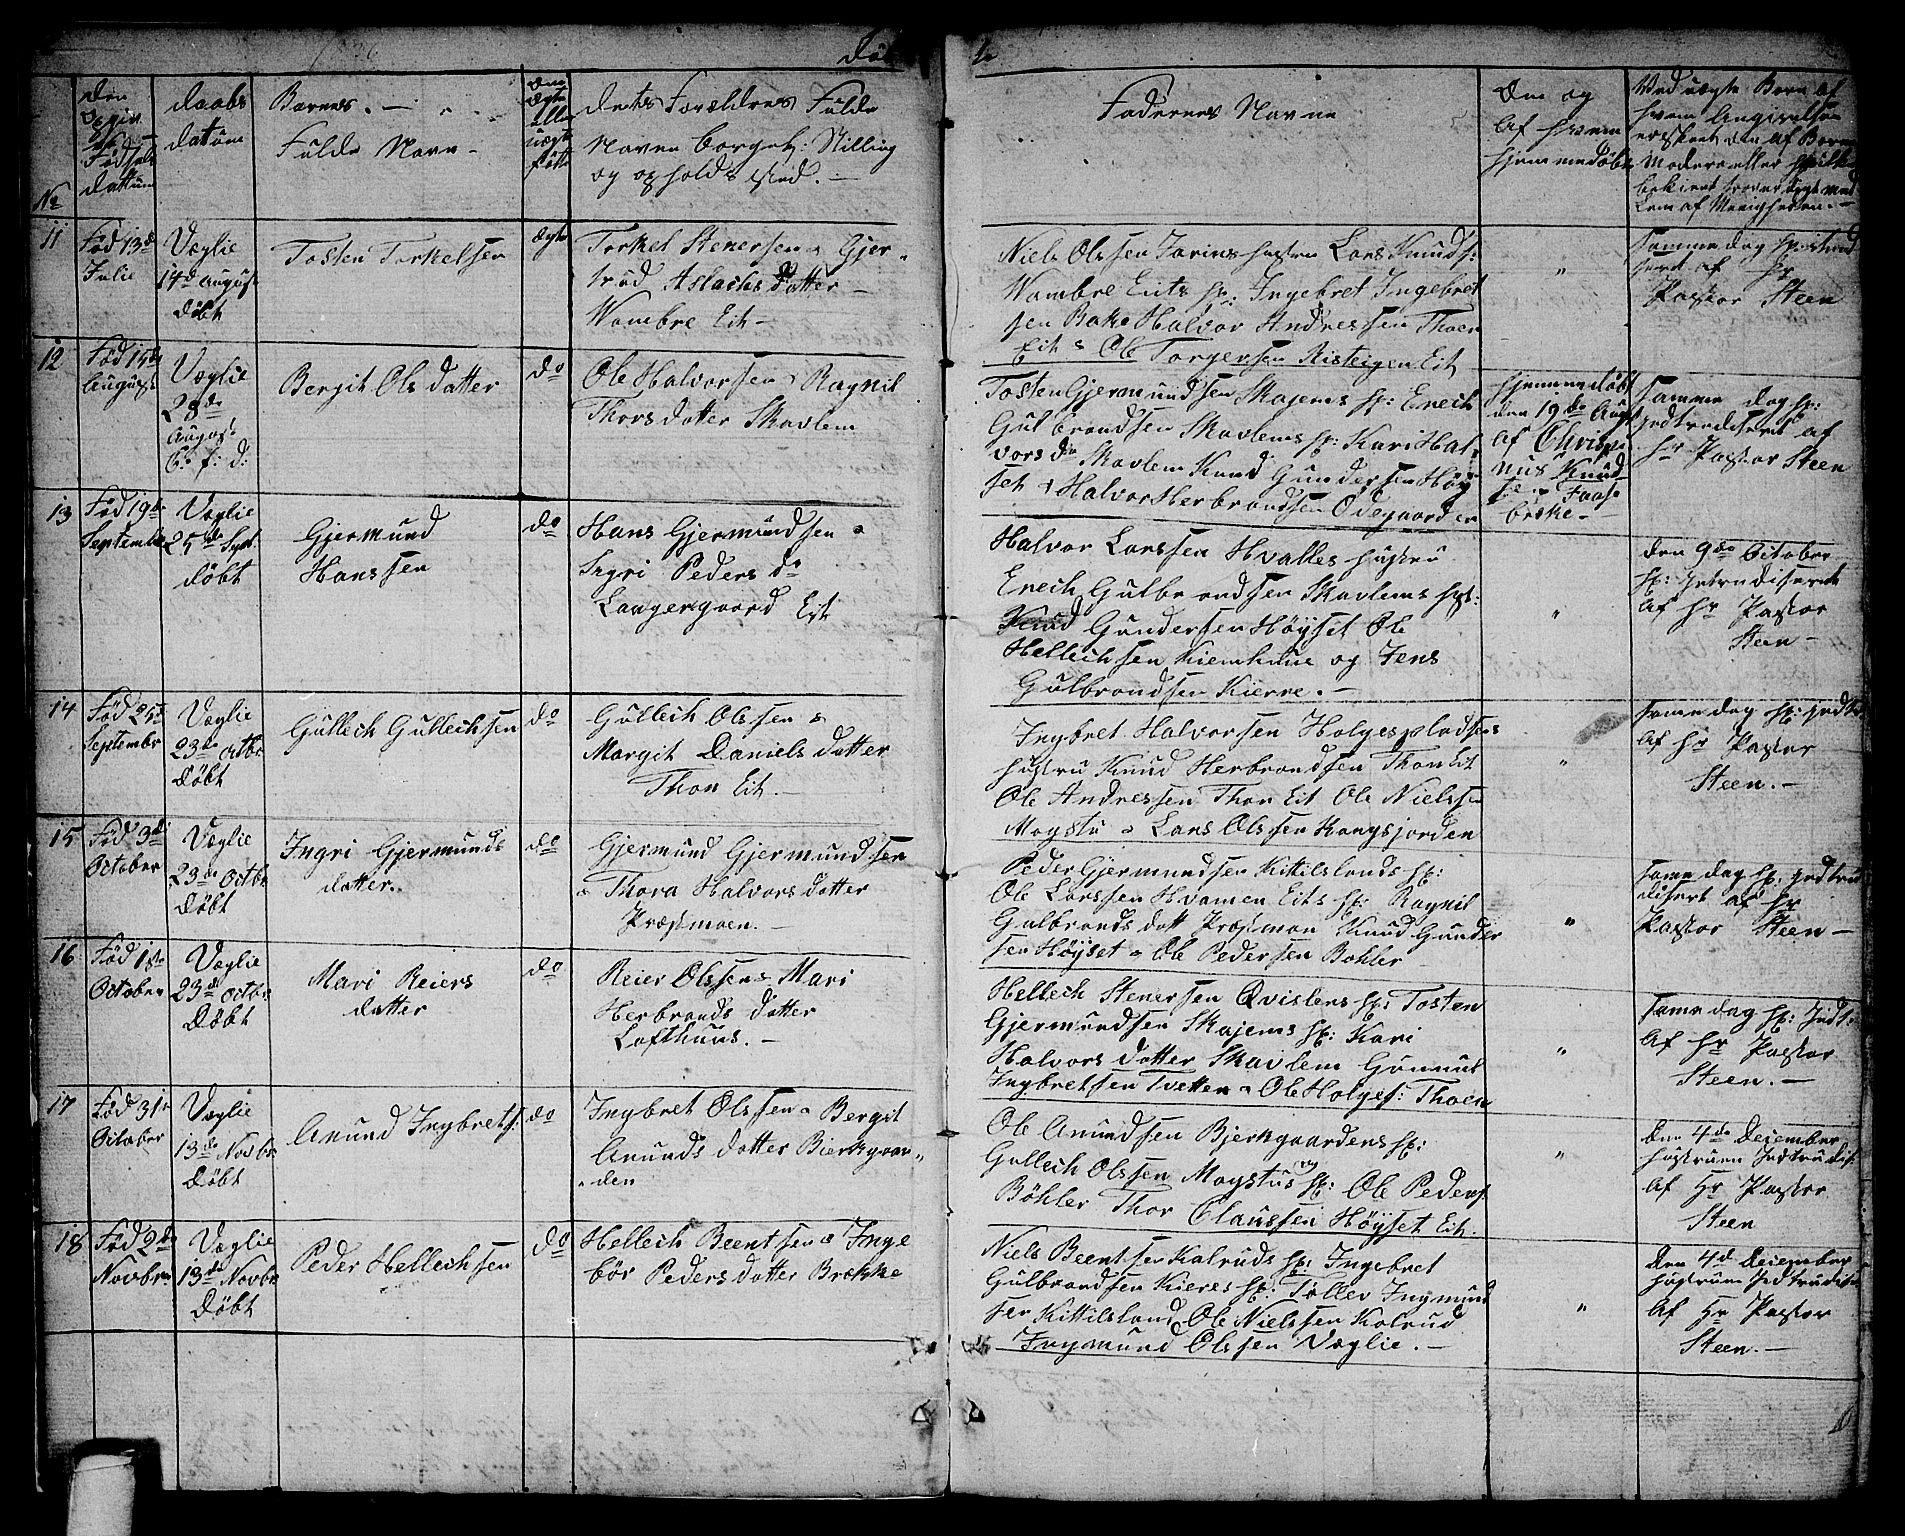 Døbte
No
den
Fødsels
Dattum
daabs
datum
Barnets
Fulde Navn
ægte
eller
uægte
født
dets Forældres Fulde
Navne borgel: Stilling
og opholds sted. —
Fadernes Navne
Om og
Af hvem
hjemmedøbt
Ved uægte Børn af
hvem Angivelsen
11
Fød 13de
Julie
Veglie
14d august
Døbt
Tosten Torkelsen
ægte
Torkel Stenersen & Gjer„
trud Aslachs datter
Wambre Eit —
Niels Olssen Lars Knuds:
Wambre Eits hu: Ingebret Ingebret
sen Bake Halvor Andressen Thoen
Eit & Ole Torgersen Risteigen Eit
„
samme dag
af Hr
Pastor Steen
12
Fød 15de
August
Veglie
28de
August
Bergit Ols datter
do
Ole Halvorsen & Ragnil
Thorsdatter Skavlem
Tosten Gjermundsen Skajems hu: Erech
Gulbrandsen Skavlems hu: Kari Hal„
vors dr Skavlem Knud Gundersen Høy„
set & Halvor Herbrandsen Ødegaarden
hjemmedøbt
den 19de Augst
af Chrispi
nus Knud
Faas„
brøke —
samme dag hu:
jndtrodiseret af
Hr Pastor Steen
13
Fød 19de
September
Veglie
25de Sept.
døbt
Gjermund
Hanssen
do
Hans Gjermundsen &
Sigri Peders dr
Langergaard Eit
Halvor Larssen Hvalles hustru
Erech Gulbrandsen Skavlems hust:
Knud Gundersen Høyset Ole
Hellechsen Kiemhuue og Jens
Gulbrandsen Kierre. —
„
den 9de October
hu: jntrudiseret
af Hr Pastor
Steen —
14
Fød 25d
Septembr
Veglie
23de Octbr.
Døbt
Gullech Gullechsen
do
Gullech Olssen &
Margit Daniels datter
Thon Eit. —
Ingbret Halvorsen Holgespladsens
hustru Knud Herbrandsen Thon Eit
Ole Andressen Thon Eit Ole Nielssen
Moystu & Lars Olssen Kongsjorden
„
same dag hu: jndtr
af Hr Pastor
Steen. —
15
Fød 3de
October
Veglie
23de Octbr
Døbt
Ingri Gjermunds
datter.
do
Gjermund Gjermundsen
& Thora Halvors datter
Præstmoen. —
Peder Gjermundsen Kittilslands hu:
Ole Larssen Hvamen Eits hu: Ragnil
Gulbrands datt Præstmon Knud Gunder
sen Høyset & Ole Pedersen Bøhler
„
same dag hu: jndtru
diseret af Hr
Pastor Steen —
16
Fød 1ste
October
Veglie
23d Octbr
Døbt
Mari Reiers
datter
do
Reier Olssen & Mari
Herbrands datter
Lofthuus. —
Hellech Stenersen Qvislens hu: Tosten
Gjermundsen Skajems hu: Kari
Halvors datter Skavlem Gunnul
Ingbretsen Tvetten & Ole Holges: Thoen
„
same dag hu: Jndt:
af Hr Pastor
Steen. —
17
Fød 31te
October
Veglie
13de Novbr
Døbt
Anund Ingbrets:
do
Ingbret Olssen & Bergit
Anunds datter Bierkgaar„
„den
Ole Anundsen Bjerkgaardens hu:
Gullech Olssen Moystus hu: og Ole Peders
Bøhler Thor Claussen Høyset Eit.
„
den 4de December
hustruen Jndtrudis:
af Hr Pastor
Steen
18
Fød 2de
Novbr
Veglie
13de Novbr
Døbt
Peder Hellechsen
do
Hellech Beentsen & Inge
bør Peders datter Brøkke
Niels Beentsen Kolruds hu: Ingebret
Gulbrandsen Kieres hu: Tollev Ingmund
sen Kittilsland Ole Nielssen Kolrud
Ingmund Olssen Veglie. —
„
den 4d December
hustruen Jndtrudise
af Hr Pastor
Steen. —